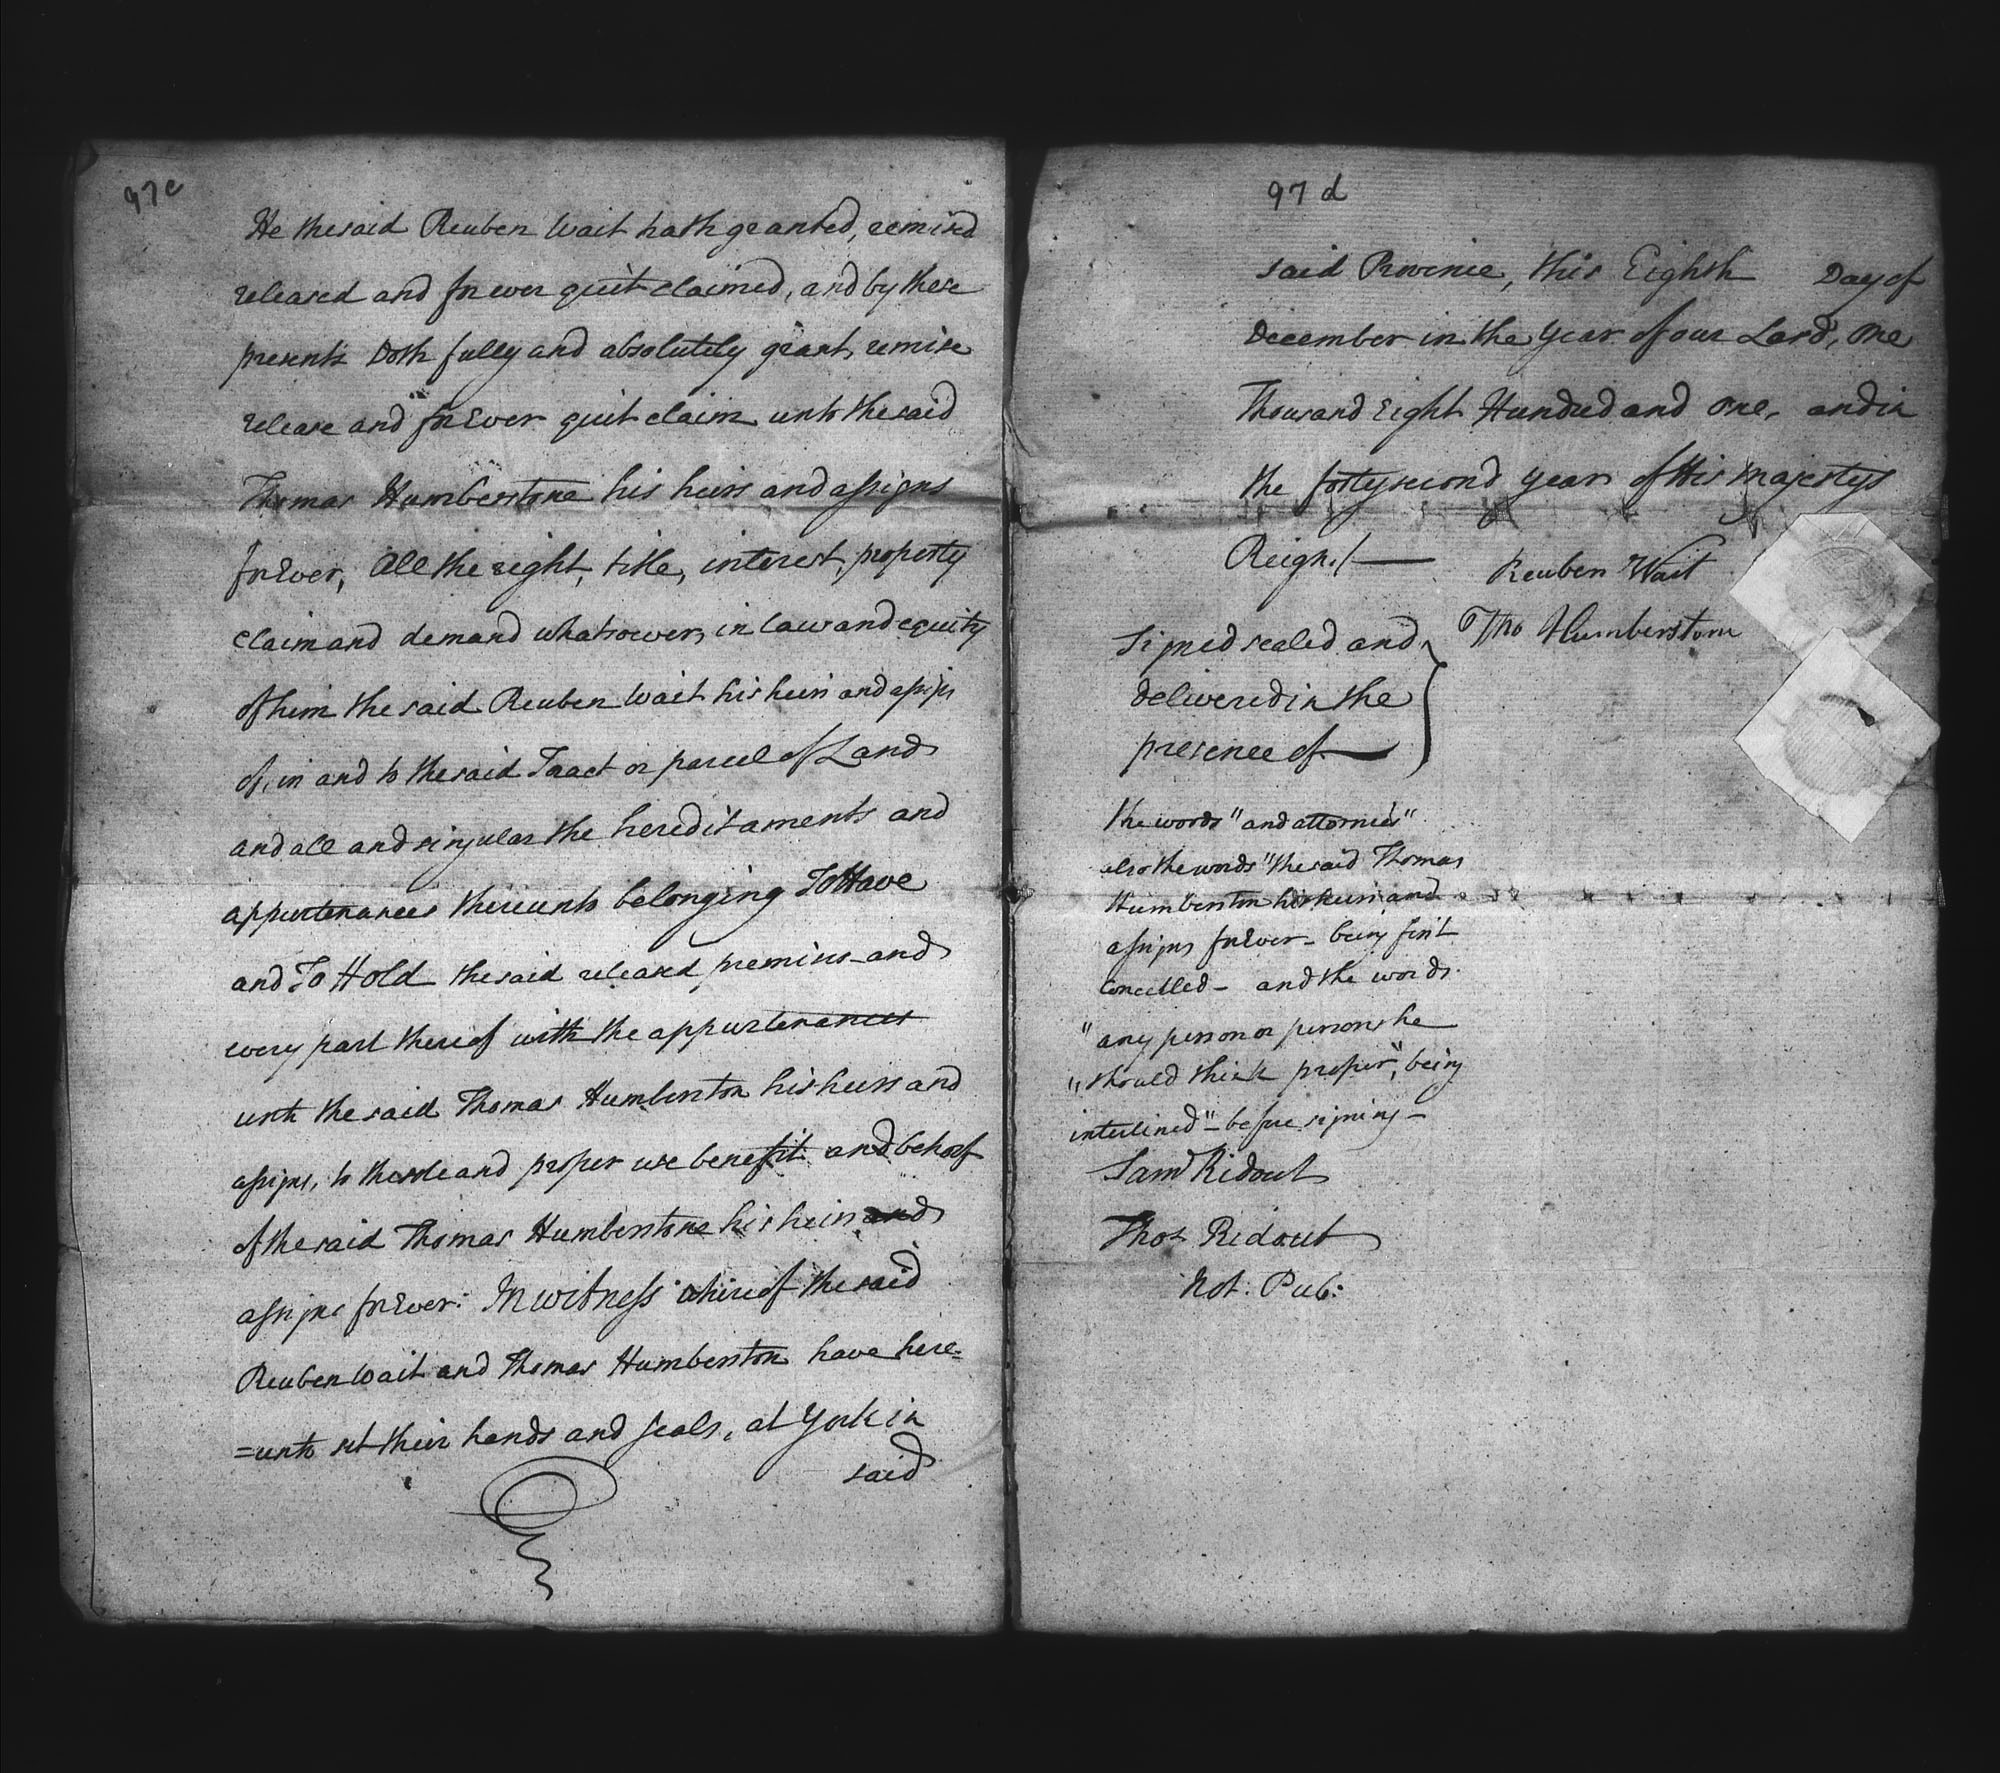 97c
He the said Reuben Wait hath granted, remised
released and forever quit claimed, and by these
presents Doth fully and absolutely grant, remise
release and forEver quit claim unto the said
Thomas Humberstone his heirs and assigns
forEver, All the right, title, interest, property
claim and demand whatsoever, in law and equity
of him the said Reuben Wait his heirs and assigns
of, in and to the said Tract or parcel of Land
and all and singular the hereditaments and
appurtenances thereunto belonging To Have
and To Hold the said released premises and
every part thereof with the appurtenances
unto the said Thomas Humberston his heirs and
assigns, to the sole and proper use benefit and behoof
of the said Thomas Humberstone his heirs and
assigns forEver: In witness whereof the said
Reuben Wait and Thomas Humberston have here=
=unto set their hands and seals, at York in
said
97 d
said Province, this Eighth Day of
December in the Year of our Lord, One
Thousand Eight Hundred and One, and in
the forty second year of His Majestys
Reign./—
Reuben Wait
Tho Humberstone
Signed sealed and
delivered in the
presence of
the words "and attornies"
also the words "the said Thomas
Humberston his heirs and
assigns forEver - being first
Cancelled - and the words
"any person or persons he
"should think proper", being
interlined" - before signing -
Saml Ridout
Thos Ridout
Not. Pub: